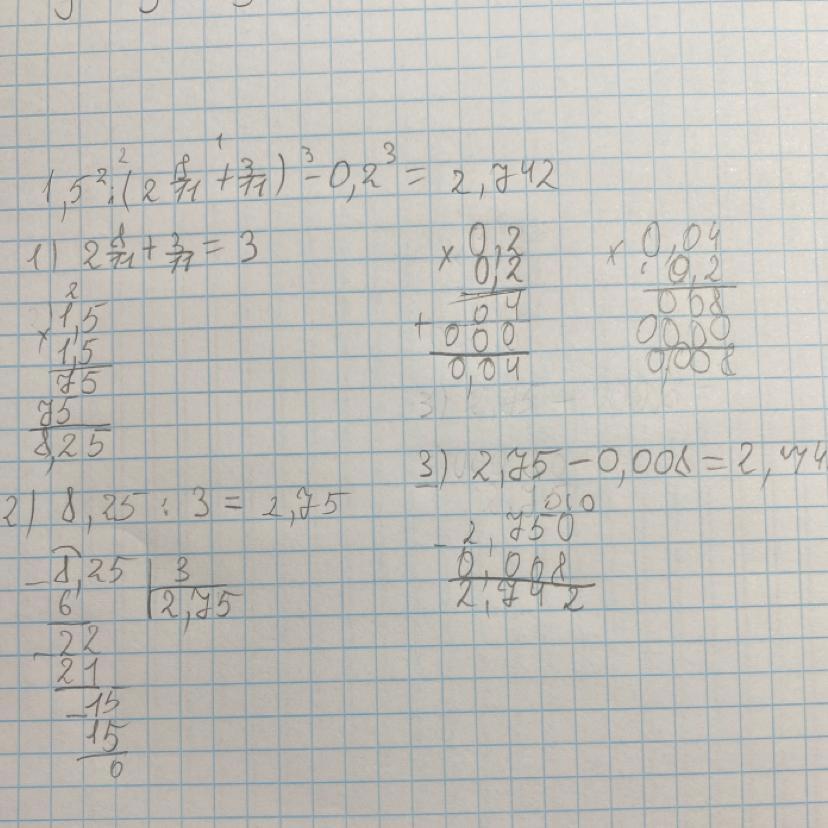 1,5² : (2 8/11 + 3/11) - 0,2³ = 2,742
2 1 3
1) 2 8/11 + 3/11 = 3
2
× 1,5
1,5
75
75
8,25
× 0,2
0,2
04
+ 000
0,04
× 0,04
0,2
008
0000
0,008
2) 8,25 : 3 = 2,75
- 8,25 | 3
6 | 2,75
- 22
21
- 15
15
0
3) 2,75 - 0,008 = 2,74
10 10
- 2,750
0,008
2,742